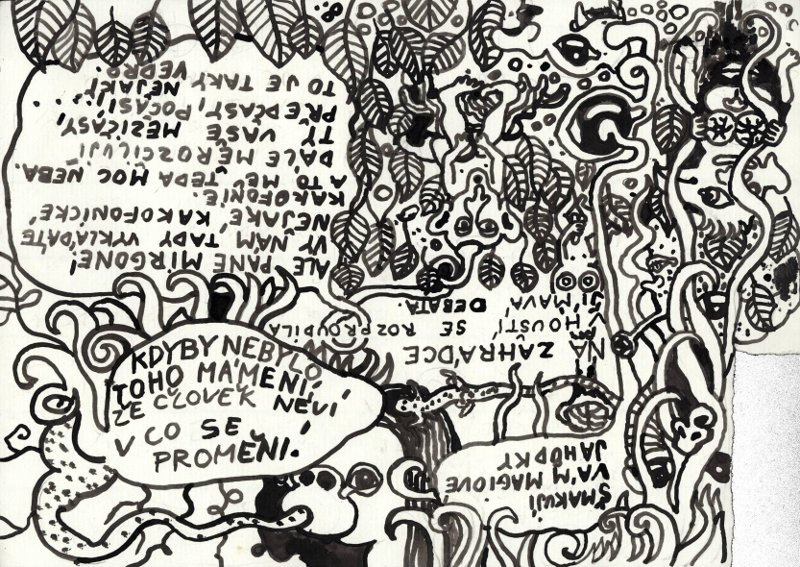 NA ZAHRÁDCE
V HOUŠTÍ SE ROZPROUDILA
JÍMAVÁ DEBATA.
ALE PANE MIRGONE!
VY NÁM TADY VYKLÁDÁTE
NĚJAKÉ KAKOFONICKÉ
KAKOFONIE.
A TO MĚ TEDA MOC NEBA.
DÁLE MĚ ROZČILUJÍ
TY VAŠE MEZIČASY,
PŘEDČASY, POČASÍ,
TO JE TAKY NĚJAKÝ
VEDRO.
ŠMAKUJÍ
VÁM MAGIOVE
JAHODKY
KDYBY NEBYLO
TOHO MÁMENÍ,
ŽE ČLOVĚK NEVÍ
V CO SE
PROMĚNÍ.